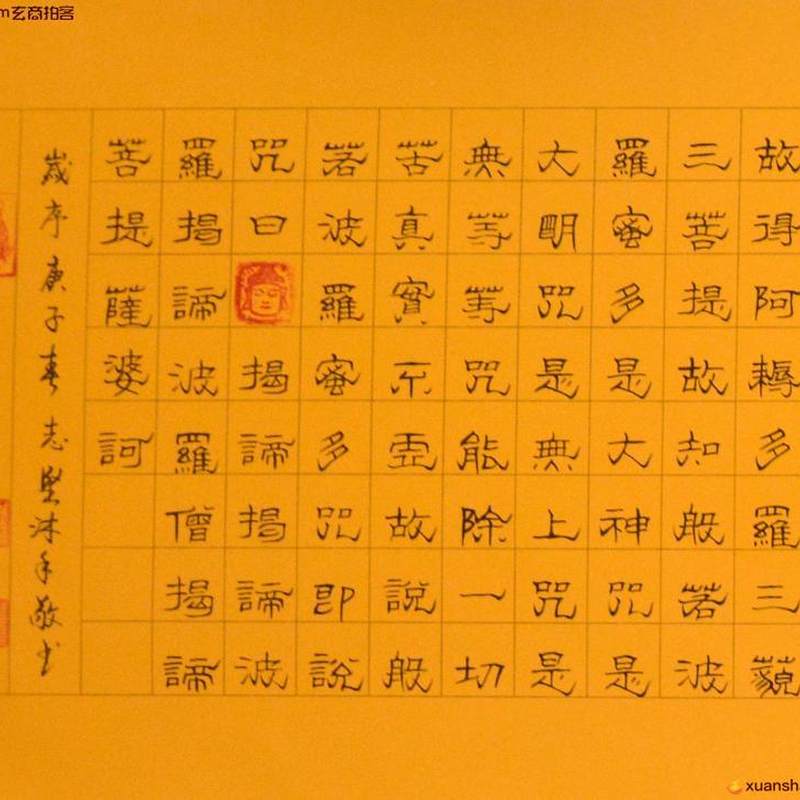 m玄商拍客
故得阿耨多羅三藐
三菩提故知般若波
羅蜜多是大神咒是
大明咒是無上咒是
無等等咒能除一切
苦真實不虛故說般
若波羅蜜多咒即說
咒曰揭諦揭諦波
羅揭諦波羅僧揭諦
菩提薩婆訶
歲序庚子春志堅沐手敬书
xuansh